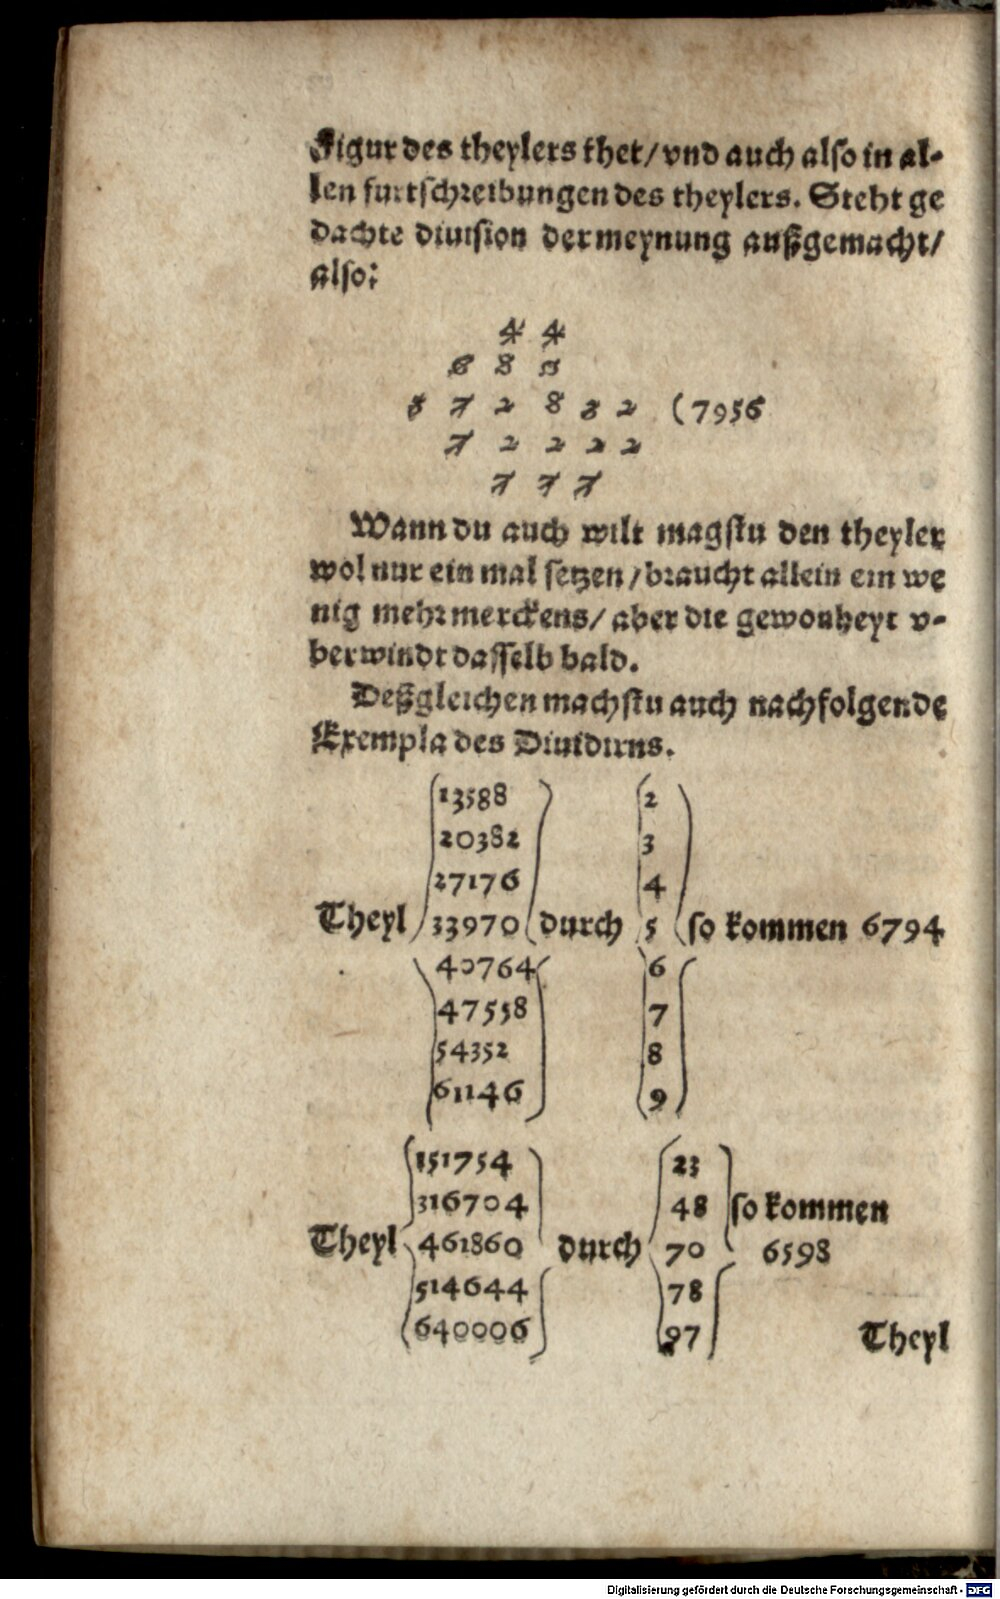 Figur des theylers thet/vnd auch also in al-
len furtschreibungen des theylers. Steht ge
dachte diuision der meynung außgemacht/
also:
4 4
6 8
5 7 2 8 3 2 (7956
7 2 2 2 2
7 7 7
Wann du auch wilt magstu den theyler
wol nur ein mal setzen/braucht allein ein we
nig mehr merckens/ aber die gewonheyt v-
berwindt dasselb bald.
Deßgleichen machstu auch nachfolgende
Exempla des Diuidirns.
13588 2
20382 3
27176 4
Theyl 33970 durch 5 so kommen 6794
40764 6
47558 7
54352 8
61146 9
151754 23
316704 48 so kommen
Theyl 461860 durch 70 6598
514644 78
640006 97 Theyl
Digitalisierung gefördert durch die Deutsche Forschungsgemeinschaft - DFG